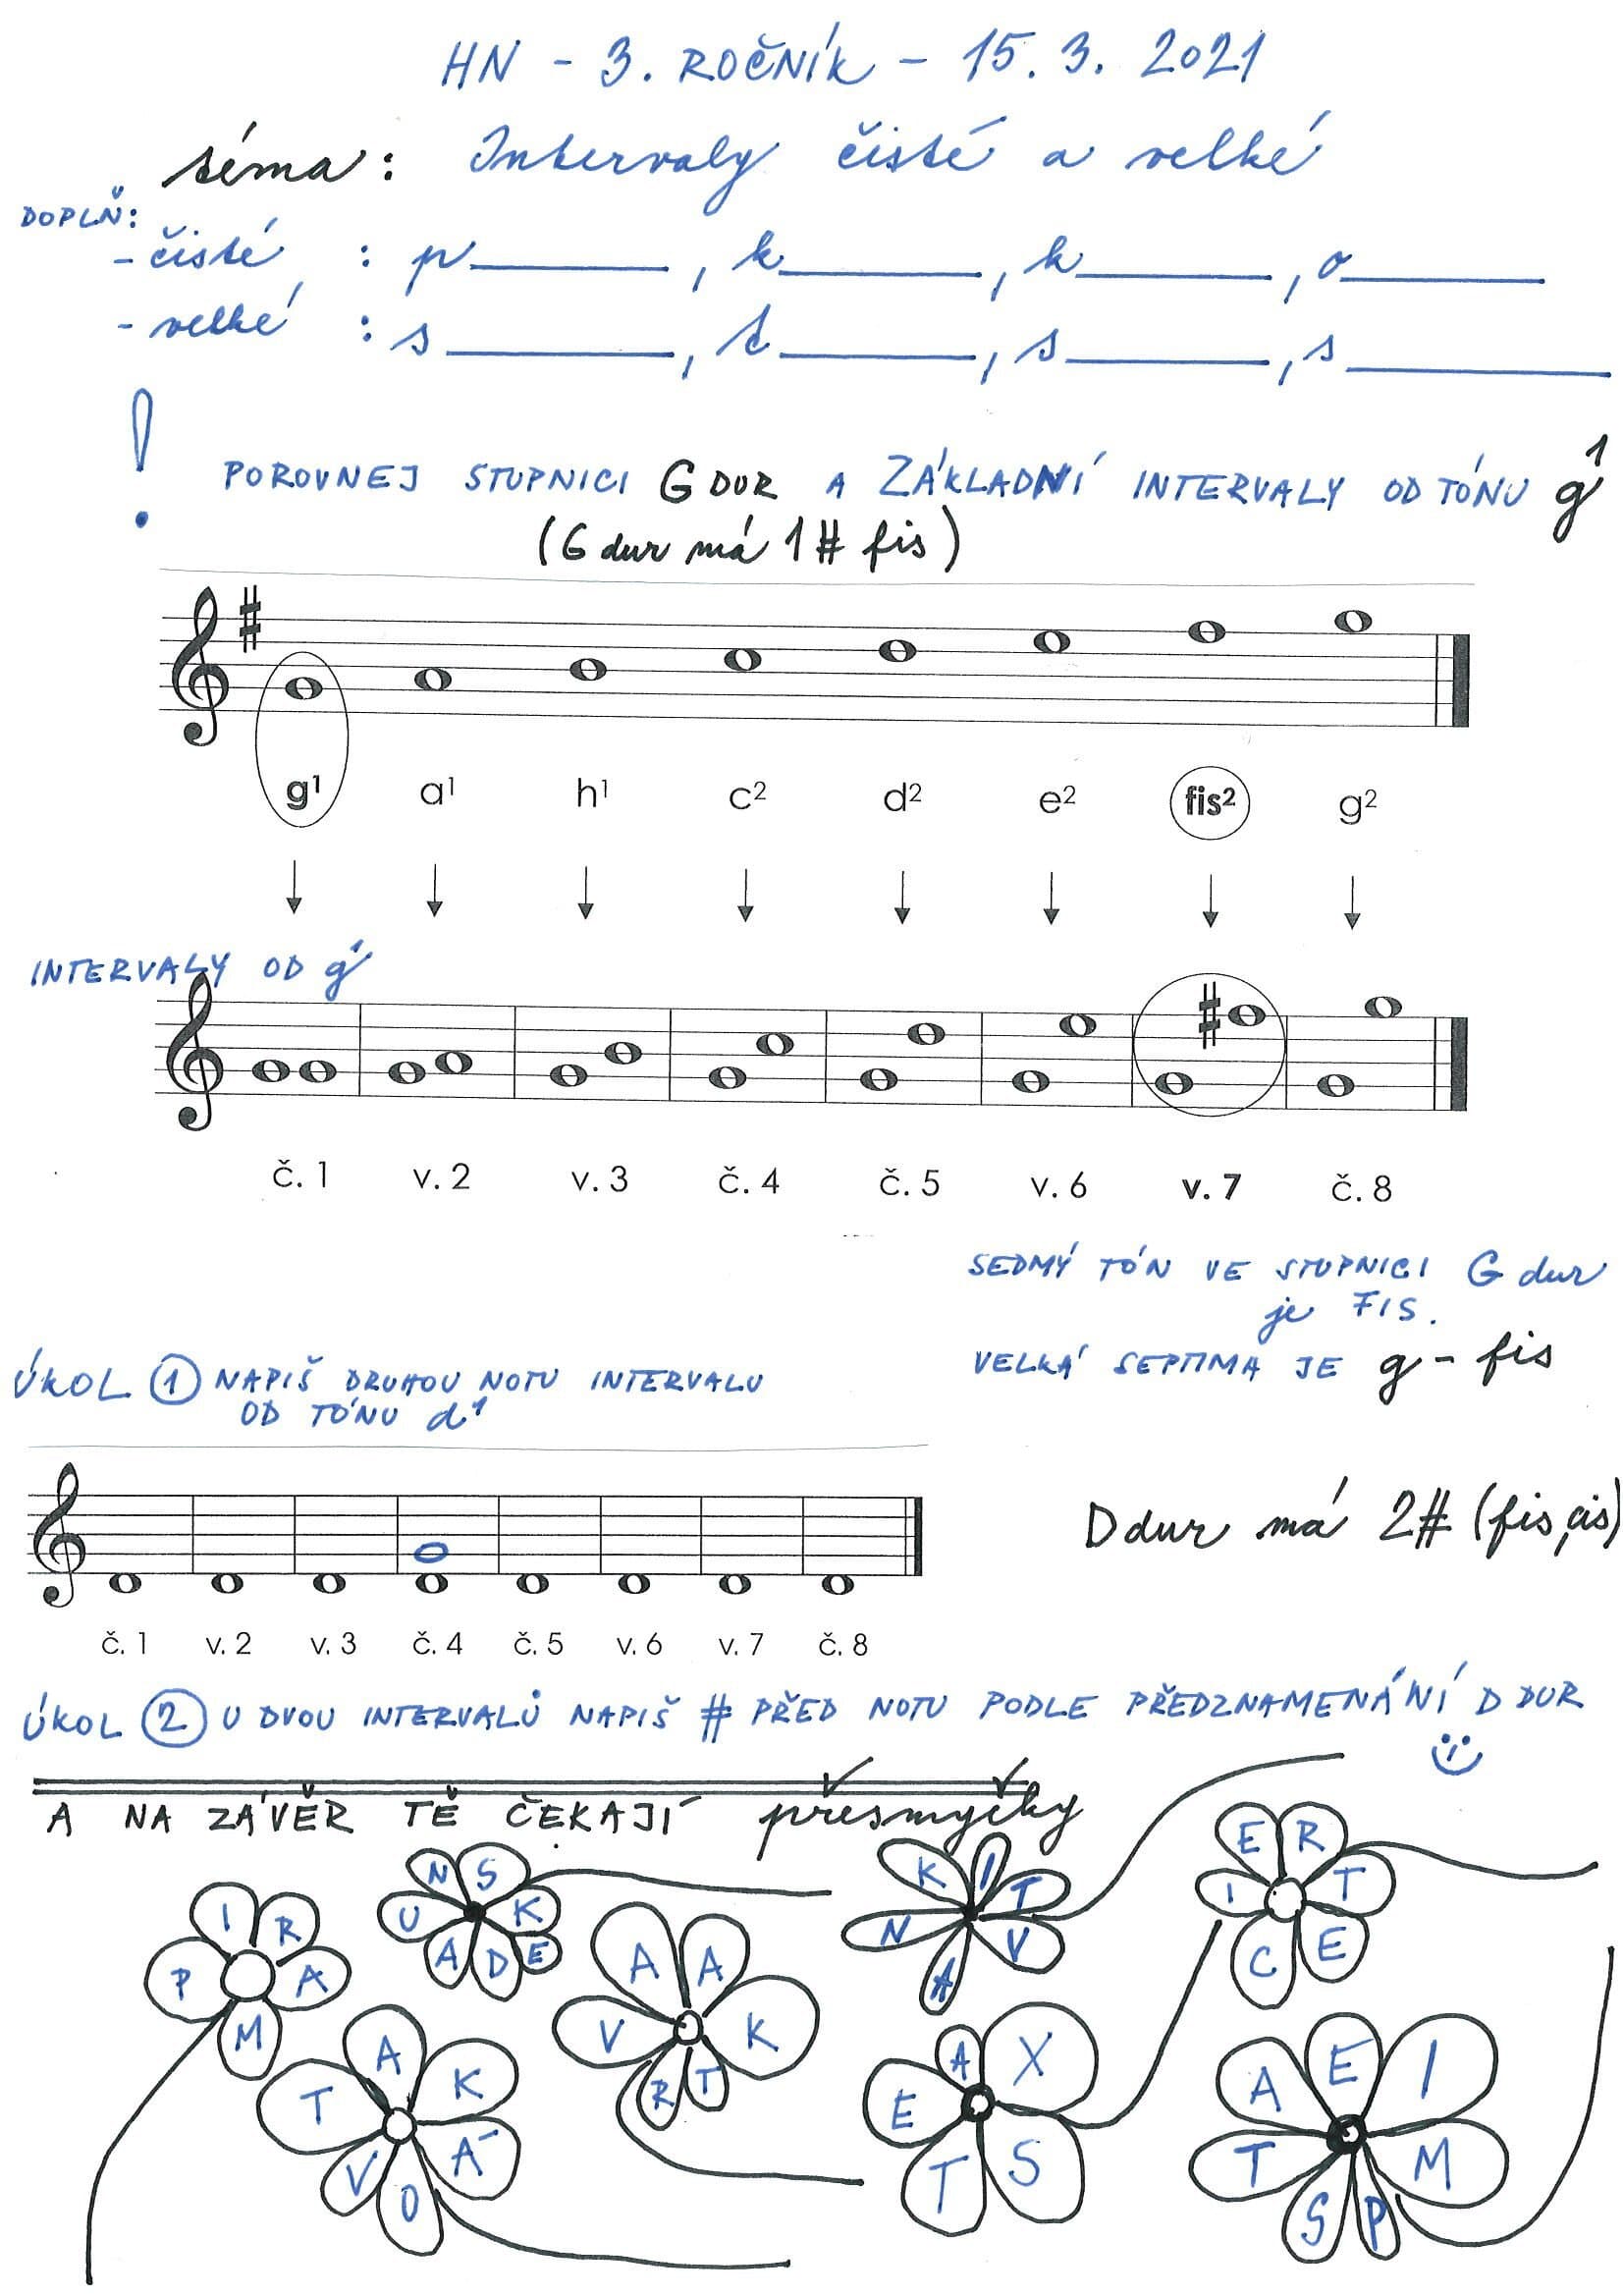 HN - 3. ROČNÍK - 15. 3. 2021
téma: Intervaly čisté a velké
DOPLŇ:
- čisté : p______, k______, k______, o______
- velké : s______, t______, s______, s______
! POROVNEJ STUPNICI G DUR A ZÁKLADNÍ INTERVALY OD TÓNU g¹
(G dur má 1# fis)
g¹ a¹ h¹ c² d² e² fis² g²
INTERVALY OD g¹
č. 1 v. 2 v. 3 č. 4 č. 5 v. 6 v. 7 č. 8
SEDMÝ TÓN VE STUPNICI G dur
je FIS.
VELKÁ SEPTIMA JE g - fis
ÚKOL 1 NAPIŠ DRUHOU NOTU INTERVALU
OD TÓNU d¹
D dur má 2# (fis, cis)
č. 1 v. 2 v. 3 č. 4 č. 5 v. 6 v. 7 č. 8
ÚKOL 2 U DVOU INTERVALŮ NAPIŠ # PŘED NOTU PODLE PŘEDZNAMENÁNÍ D DUR
A NA ZÁVĚR TĚ ČEKAJÍ přesmyčky
P I R A M
U N S K E D A
T A K Á O V
V A A K T R
N K I T V A
I E R T E C
E A X S T
T A E I M P S